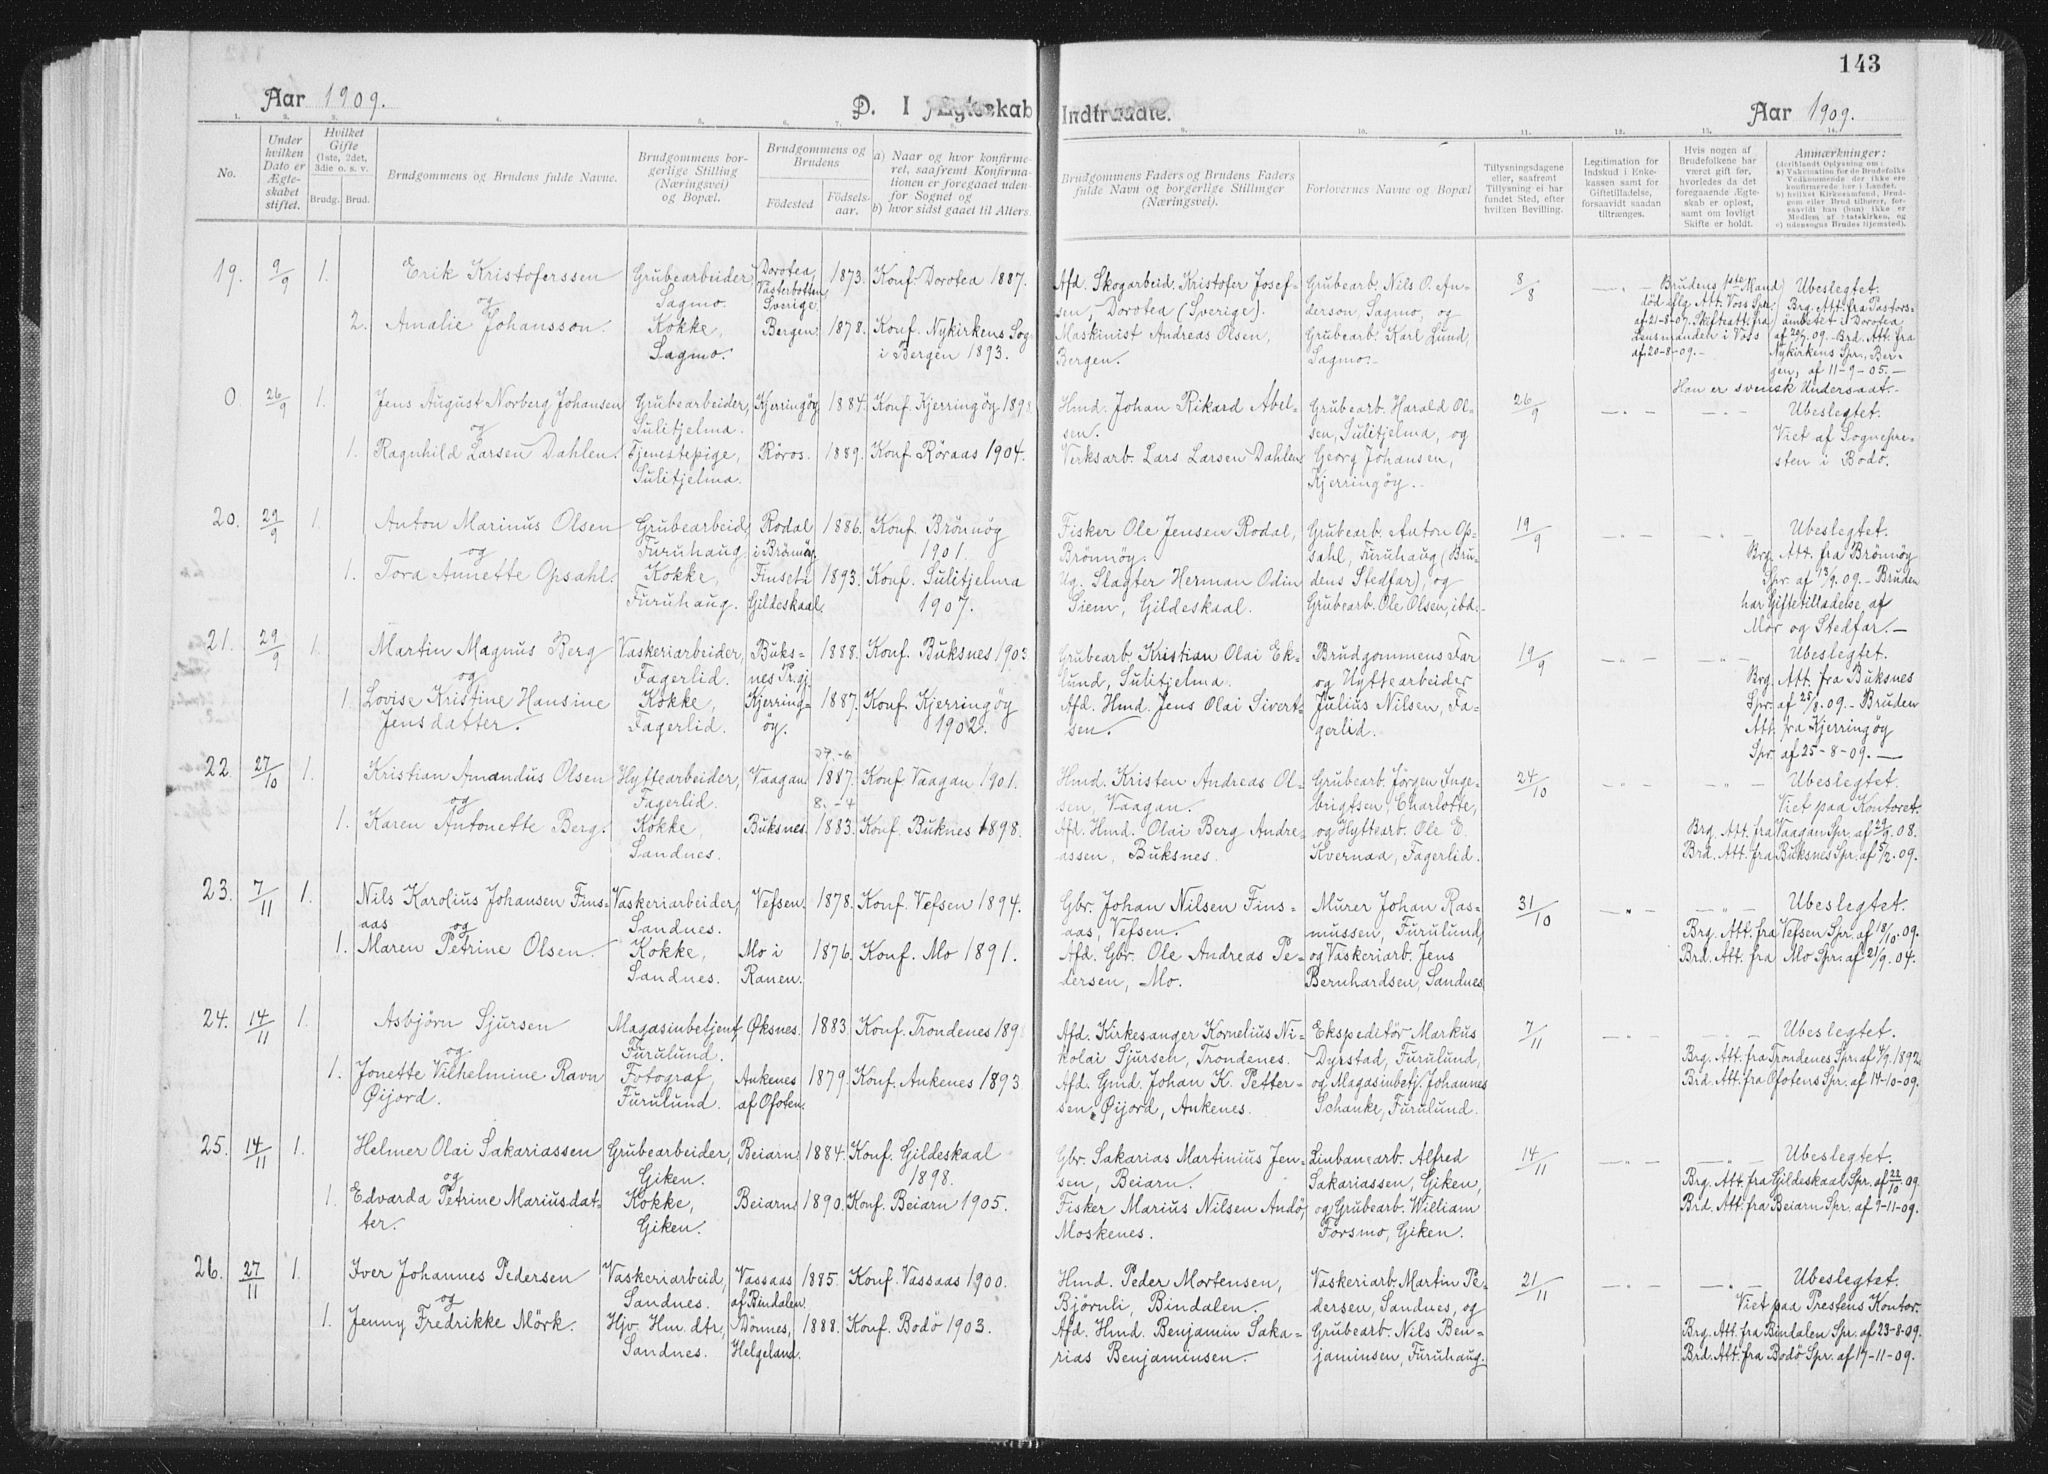 143
Aar 1909.
D. I Ægteskab Indtraadte.
Aar 1909.
1. 2. 3. 4. 5. 6. 7. 9. 10. 11. 12. 13. 14.
No.
Under hvilken Dato er Ægteskabet stiftet.
Hvilket Gifte (1ste, 2det, 3die o. s. v.
Brudg. Brud.
Brudgommens og Brudens fulde Navne.
Brudgommens borgerlige Stilling (Næringsvei) og Bopæl.
Brudgommens og Brudens
Fødested
Fødselsaar.
a) Naar og hvor konfirmeret, saafremt Konfirmationen er foregaaet udenfor Sognet og
b) hvor sidst gaaet til Alters.
Brudgommens Faders og Brudens Faders fulde Navn og borgerlige Stillinger (Næringsvei).
Forlovernes Navne og Bopæl
Tillysningsdagene eller, saafremt Tillysning ei har fundet Sted, efter hvilken Bevilling.
Legitimation for Indskud i Enkekassen samt for Giftetilladelse, forsaavidt saadan tiltrænges.
Hvis nogen af Brudefolkene har været gift før, hvorledes da det foregaaende Ægteskab er opløst, samt om lovligt Skifte er holdt.
Anmærkninger:
(deriblandt Oplysning om:
a) Vakcination for de Brudefolks Vedkommende der ikke ere konfirmerede her i Landet.
b) hvilket Kirkesamfund, Brudgom eller Brud tilhører, forsaavidt han (hun) ikke er Medlem af Statskirken, og
c) udensogns Brudes Hjemsted).
19. 9/9 1. Erik Kristoferssen
og
2. Amalie Johansson.
Grubearbeider,
Sagmo.
Kokke,
Sagmo.
Dorotea,
Vasterbotten
Sverige.
Bergen.
1873.
1878.
Konf. Dorotea 1887.
Konf. Nykirkens Sog
i Bergen 1893.
Afd. Skogarbeid. Kristofer Josef-
sen, Dorotea (Sverige).
Maskinist Andreas Olsen,
Bergen.
Grubearb. Nils O. An-
derson, Sagmo, og
Grubearb. Karl Lund,
Sagmo.
8/8
Brudens 1ste Mand
död iflg. Att. Voss Spr.
af 21-8-07. Skifteatt. fra
Lensmanden i Voss
af 20-8-09.
Ubeslegtet.
Brg. Att. fra Pastors-
ämbetet i Dorotea
af 20/7 09. Brd. Att. fra
Nykirkens Spr., Ber-
gen, af 11-9-05.
Han er svensk Undersaat.
0. 26/9 1. Jens August Norberg Johansen
og
1. Ragnhild Larsen Dahlen.
Grubearbeider,
Sulitjelma.
Tjenestepige,
Sulitjelma.
Kjerringöy
Röros.
1884.
1889.
Konf. Kjerringöy 1898.
Konf. Röraas 1904.
Hmd. Johan Rikard Abel-
sen.
Verksarb. Lars Larsen Dahlen
Grubearb. Harald Ol-
sen, Sulitjelma, og
Georg Johansen,
Kjerringöy.
26/9
Ubeslegtet.
Viet af Sognepre-
sten i Bodö.
20. 29/9 1. Anton Marinus Olsen
og
1. Tora Annette Opsahl.
Grubearbeid.
Furuhaug
Kokke,
Furuhaug.
Rodal
i Brönnöy
Finset i
Gildeskaal.
1886.
1893.
Konf. Brönnöy
1901.
Konf. Sulitjelma
1907.
Fisker Ole Jensen Rodal,
Brönnöy.
Ug. Slagter Herman Odin
Siem, Gildeskaal.
Grubearb. Anton Op-
sahl, Furuhaug (Bru-
dens Stedfar), og
Grubearb. Ole Olsen, ibd.
19/9
Ubeslegtet.
Brg. Att. fra Brönnöy
Spr. af 13/9. 09. - Bruden
har Giftetilladelse af
Mor og Stedfar.
21. 29/9 1. Martin Magnus Berg
og
1. Lovise Kristine Hansine
Jensdatter.
Vaskeriarbeider,
Fagerlid.
Kokke,
Fagerlid.
Buks-
nes Pr.gj.
Kjerring-
öy.
1888.
1887.
Konf. Buksnes 1903
Konf. Kjerringöy
1902.
Grubearb. Kristian Olai Ek-
lund, Sulitjelma.
Afd. Hmd. Jens Olai Sivert-
sen.
Brudgommens Far
og Hyttearbeider
Julius Nilsen, Fa-
gerlid.
19/9
Ubeslegtet.
Brg. Att. fra Buksnes
Spr. af 25/8. 09. - Bruden
Att. fra Kjerringöy
Spr. af 25-8-09.
22. 27/10 1. Kristian Amandus Olsen
og
1. Karen Antonette Berg.
Hyttearbeider,
Fagerlid.
Kokke,
Sandnes.
Vaagan.
Buksnes.
27.-6
1887.
8.-4
1883.
Konf. Vaagan 1901.
Konf. Buknes 1898.
Hmd. Kristen Andreas Ol-
sen, Vaagan.
Afd. Hmd. Olai Berg Andre-
assen, Buksnes.
Grubearb. Jörgen Inge-
brigtsen, Charlotte,
og Hyttearb. Ole E.
Kvernaa, Fagerlid.
24/10
Ubeslegtet.
Viet paa Kontoret.
Brg. Att. fra Vaagan Spr. af 29/9. 08.
Brd. Att. fra Buksnes Spr. af 5/2. 09.
23. 7/11 1. Nils Karolius Johansen Fins-
aas og
1. Maren Petrine Olsen.
Vaskeriarbeider,
Sandnes.
Kokke,
Sandnes.
Vefsen.
Mo i
Ranen.
1878.
1876.
Konf. Vefsen 1894.
Konf. Mo 1891.
Gbr. Johan Nilsen Fins-
aas, Vefsen.
Afd. Gbr. Ole Andreas Pe-
dersen, Mo.
Murer Johan Ras-
mussen, Furulund,
og Vaskeriarb. Jens
Bernhardsen, Sandnes
31/10
Ubeslegtet.
Brg. Att. fra Vefsen Spr. af 18/10. 09.
Brd. Att. fra Mo Spr. af 21/9. 04.
24. 14/11 1. Asbjörn Sjursen
og
1. Jonette Vilhelmine Ravn
Øijord.
Magasinbetjent,
Furulund.
Fotograf,
Furulund.
Øksnes.
Ankenes
af Ofoten.
1883.
1879.
Konf. Trondenes 189
Konf. Ankenes 1893
Afd. Kirkesanger Kornelius Ni-
kolai Sjursen, Trondenes.
Afd. Gmd. Johan K. Petter-
sen, Øijord, Ankenes.
Ekspeditör Markus
Dyrstad, Furulund,
og Magasinbetj. Johannes
Schanke, Furulund.
7/11
Ubeslegtet.
Brg. Att. fra Trondenes Spr. af 4/9. 1892
Brd. Att. fra Ofotens Spr. af 14-10-09.
25. 14/11 1. Helmer Olai Sakariassen
og
1. Edvarda Petrine Mariusdat-
ter.
Grubearbeider,
Giken.
Kokke,
Giken.
Beiarn
Beiarn
1884.
1890.
Konf. Gildeskaal
1898.
Konf. Beiarn 1905.
Gbr. Sakarias Martinius Jen-
sen, Beiarn.
Fisker Marius Nilsen Andö,
Moskenes.
Linbanearb. Alfred
Sakariassen, Giken,
og Grubearb. William
Forsmo, Giken.
14/11
Ubeslegtet.
Brg. Att. fra Gildeskaal Spr. af 22/10 09
Brd. Att. fra Beiarn Spr. af 9-11-09.
26. 27/11 1. Iver Johannes Pedersen
og
1. Jenny Fredrikke Mörk.
Vaskeriarbeid,
Sandnes.
Hjv. Hm.dtr,
Sandnes.
Vassaas
af Bindalen.
Dönnes,
Helgeland.
1885.
1888.
Konf. Vassaas 1900.
Konf. Bodö 1903.
Hmd. Peder Mortensen,
Björnli, Bindalen.
Afd. Hmd. Benjamin Saka-
rias Benjaminsen.
Vaskeriarb. Martin Pe-
dersen, Sandnes, og
Grubearb. Nils Ben-
jaminsen, Furuhaug.
21/11
Ubeslegtet.
Viet paa Prestens Kontor.
Brg. Att. fra Bindalen Spr. af 23-8-09.
Brd. Att. fra Bodö Spr. af 17-11-09.